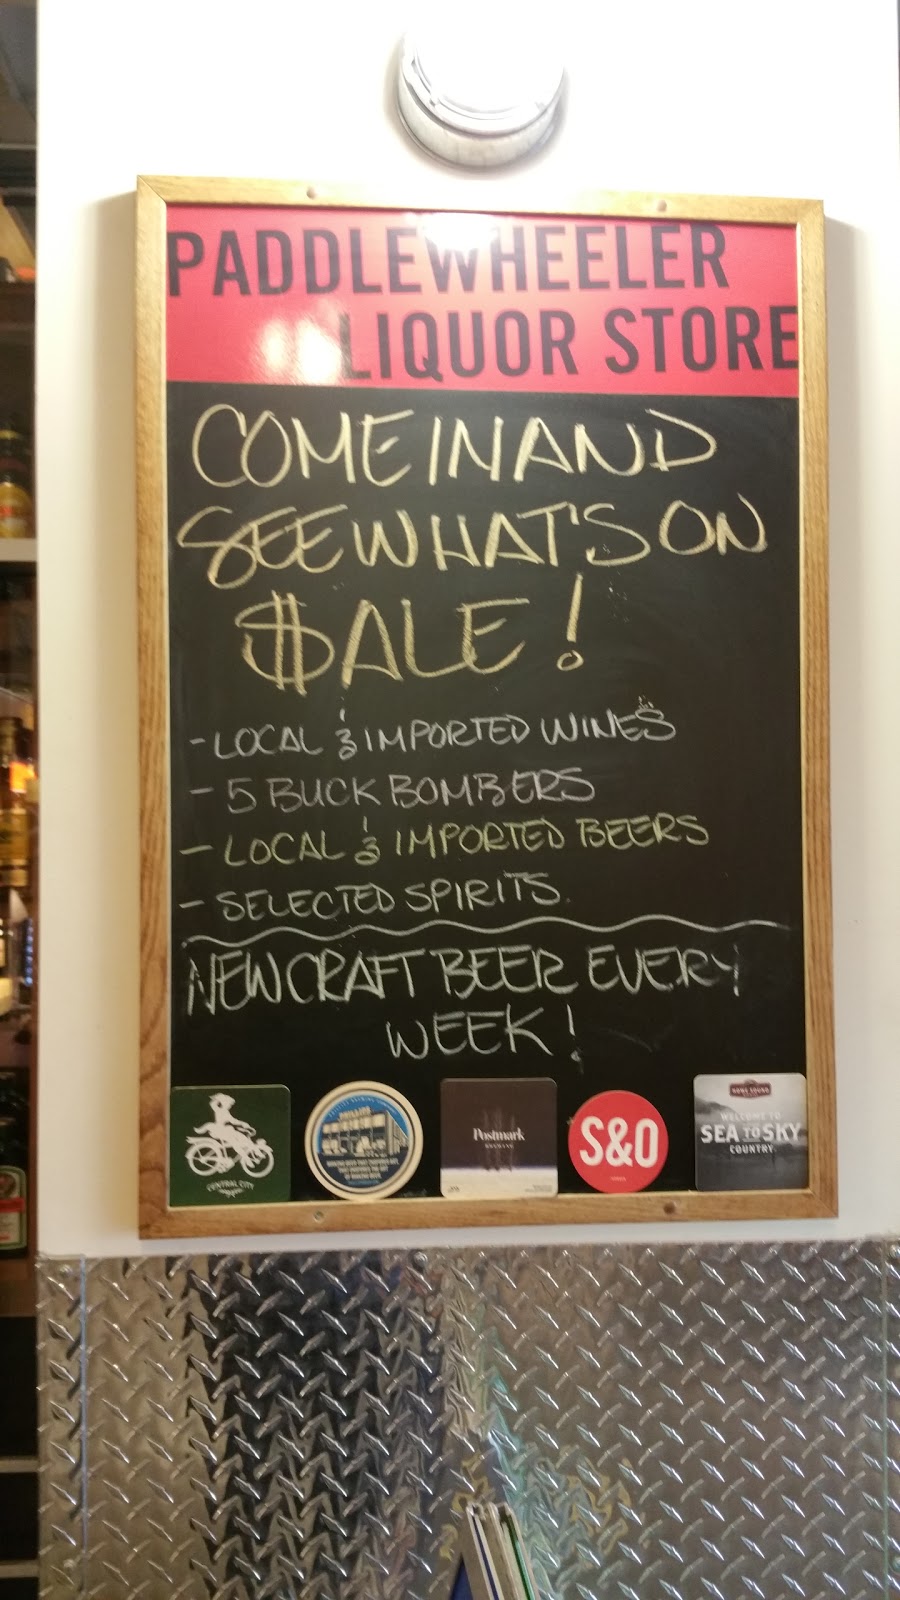 PADDLEWHEELER
LIQUOR STORE
COME IN AND
SEE WHAT'S ON
$ALE!
- LOCAL & IMPORTED WINES
- 5 BUCK BOMBERS
- LOCAL & IMPORTED BEERS
- SELECTED SPIRITS.
NEW CRAFT BEER EVERY
WEEK!
CENTRAL CITY
PHILLIPS
Postmark
BREWING
S&O
HOWE SOUND
WELCOME TO
SEA TO SKY
COUNTRY